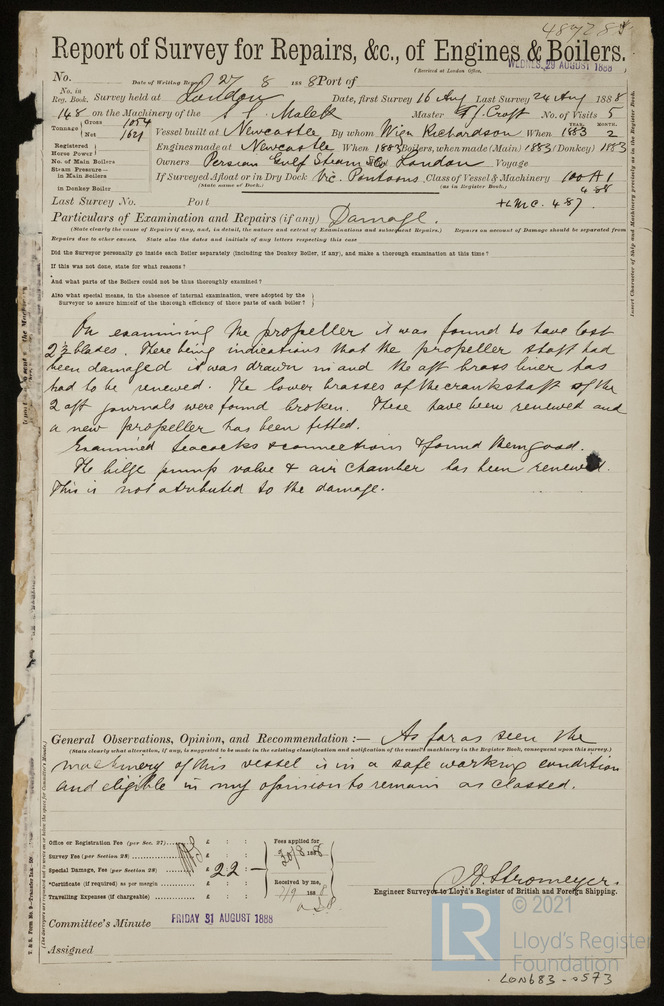 48728
Report of Survey for Repairs, &c., of Engines & Boilers.
(Received at London Office, WEDNES. 29 AUGUST 1888
No. Date of Writing Report 27 8 1888 Port of
No. in Reg. Book. Survey held at London Date, first Survey 16 Aug Last Survey 24 Aug 1888
148 on the Machinery of the S.S. Malek Master Croft No. of Visits 5
Tonnage Gross Net 1629 Vessel built at Newcastle By whom Wigm Richardson When YEAR. 1883 MONTH. 2
Registered Horse Power Engines made at Newcastle When 1883 Boilers, when made (Main) 1883 (Donkey) 1883
No. of Main Boilers Owners Persian Gulf Steam London Voyage
Steam Pressure— in Main Boilers If Surveyed Afloat or in Dry Dock Vic. Pontoons Class of Vessel & Machinery 100 A 1
in Donkey Boiler (State name of Dock.) (as in Register Book.) 4.88
Last Survey No. Port +LMC. 4.87.
Particulars of Examination and Repairs (if any) Damage.
(State clearly the cause of Repairs if any, and, in detail, the nature and extent of Examinations and subsequent Repairs.) Repairs on account of Damage should be separated from
Repairs due to other causes. State also the dates and initials of any letters respecting this case
Did the Surveyor personally go inside each Boiler separately (including the Donkey Boiler, if any), and make a thorough examination at this time?
If this was not done, state for what reasons?
And what parts of the Boilers could not be thus thoroughly examined?
Also what special means, in the absence of internal examination, were adopted by the
Surveyor to assure himself of the thorough efficiency of those parts of each boiler?
On examining the propeller it was found to have lost
2½ blades. There being indications that the propeller shaft had
been damaged it was drawn in and the aft brass liner has
had to be renewed. The lower brasses of the crankshaft of the
2 aft journals were found broken. These have been renewed and
a new propeller has been fitted.
Examined seacocks & connections & found them good.
The bilge pump valve & air chamber has been renewed.
This is not atributed to the damage.
General Observations, Opinion, and Recommendation :— As far as seen the
(State clearly what alteration, if any, is suggested to be made in the existing classification and notification of the vessel's machinery in the Register Book, consequent upon this survey.)
machinery of this vessel is in a safe working condition
and eligible in my opinion to remain as classed.
Office or Registration Fee (per Sec. 27) £ : :
Survey Fee (per Section 28) £ : :
Special Damage, Fee (per Section 28) £ 22 : —
*Certificate (if required) as per margin £ : :
Travelling Expenses (if chargeable) £ : :
Fees applied for, 30/8 1888
Received by me, 7/9 1888
Stromeyer.
Engineer Surveyor to Lloyd's Register of British and Foreign Shipping.
Committee's Minute FRIDAY 31 AUGUST 1888
Assigned
Insert Character of Ship and Machinery precisely as in the Register Book.
© 2021
LR
Lloyd's Register
Foundation
LON683-0573